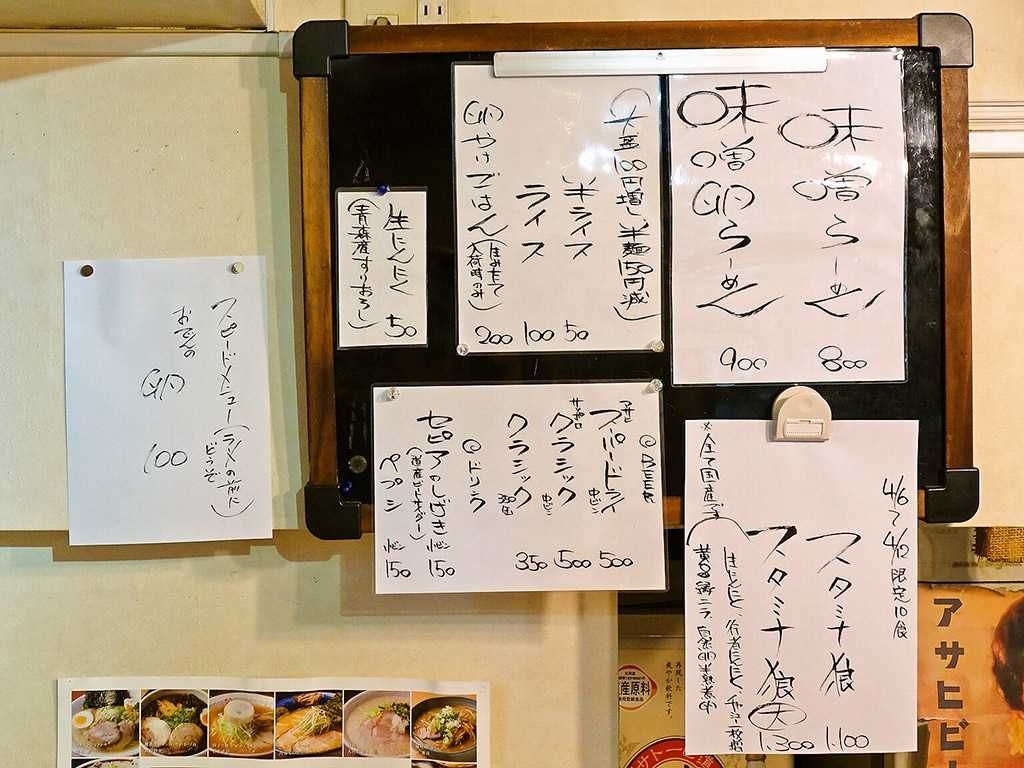 味噌らーめん 800
味噌卵らーめん 900
(大盛100円増し、半麺150円減)
半ライス 50
ライス 100
卵やけごはん(生みたて入荷時のみ) 200
生にんにく 50
(青森産すりおろし)
スピードメニュー(ラーメンの前にどうぞ)
おでんの
卵
100
◎BEER
アサヒ
スーパードライ 中ビン 500
サッポロ
クラシック 中ビン 500
クラシック 350缶 350
◎ドリンク
セピアのしげき 小ビン 150
(道産ビートサイダー)
ペプシ 小ビン 150
4/6〜4/12 限定10食
スタミナ狼 1.100
スタミナ狼(大) 1.300
(生にんにく、行者にんにく、チャシュー一枚増
黄ニラ、自然卵半熟煮卵)
※全て国産です
再現した
爽やか飲料です。
産原料
アサヒビ